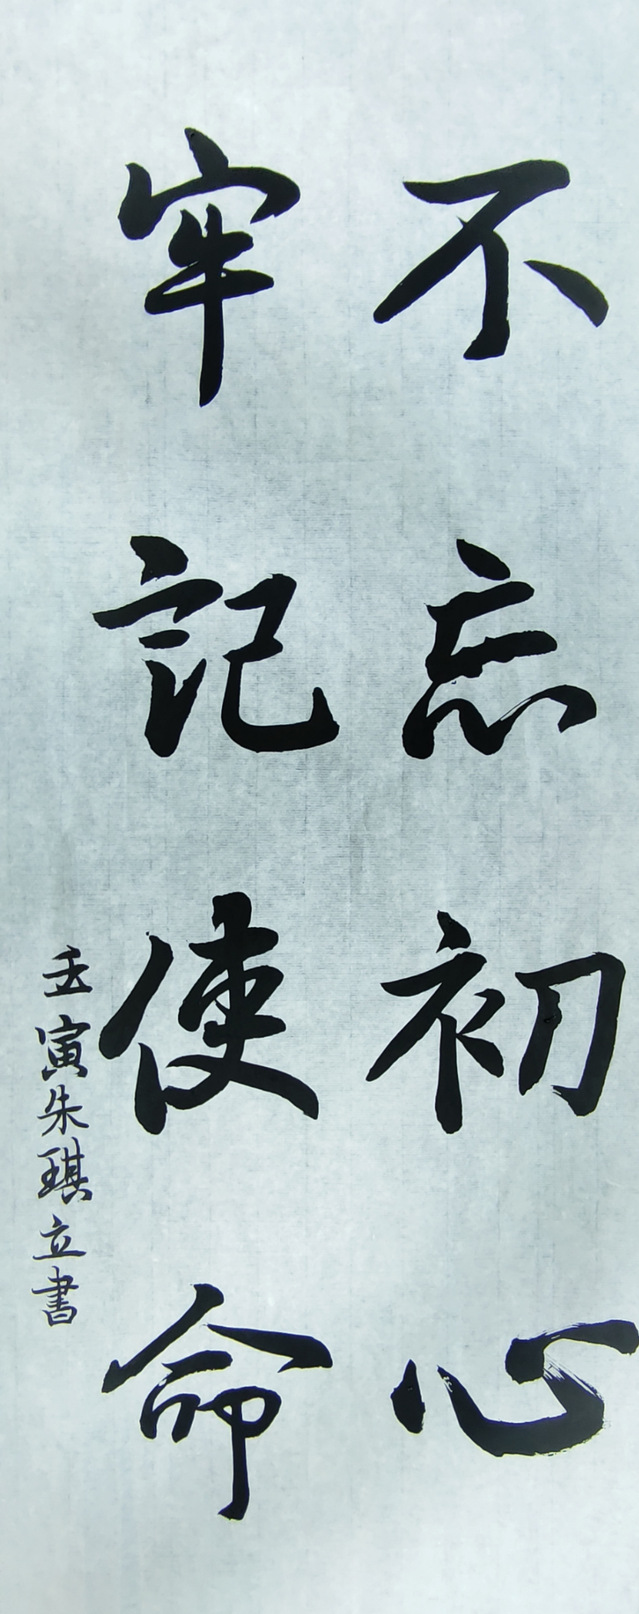 不忘初心
牢記使命
壬寅朱琪立書